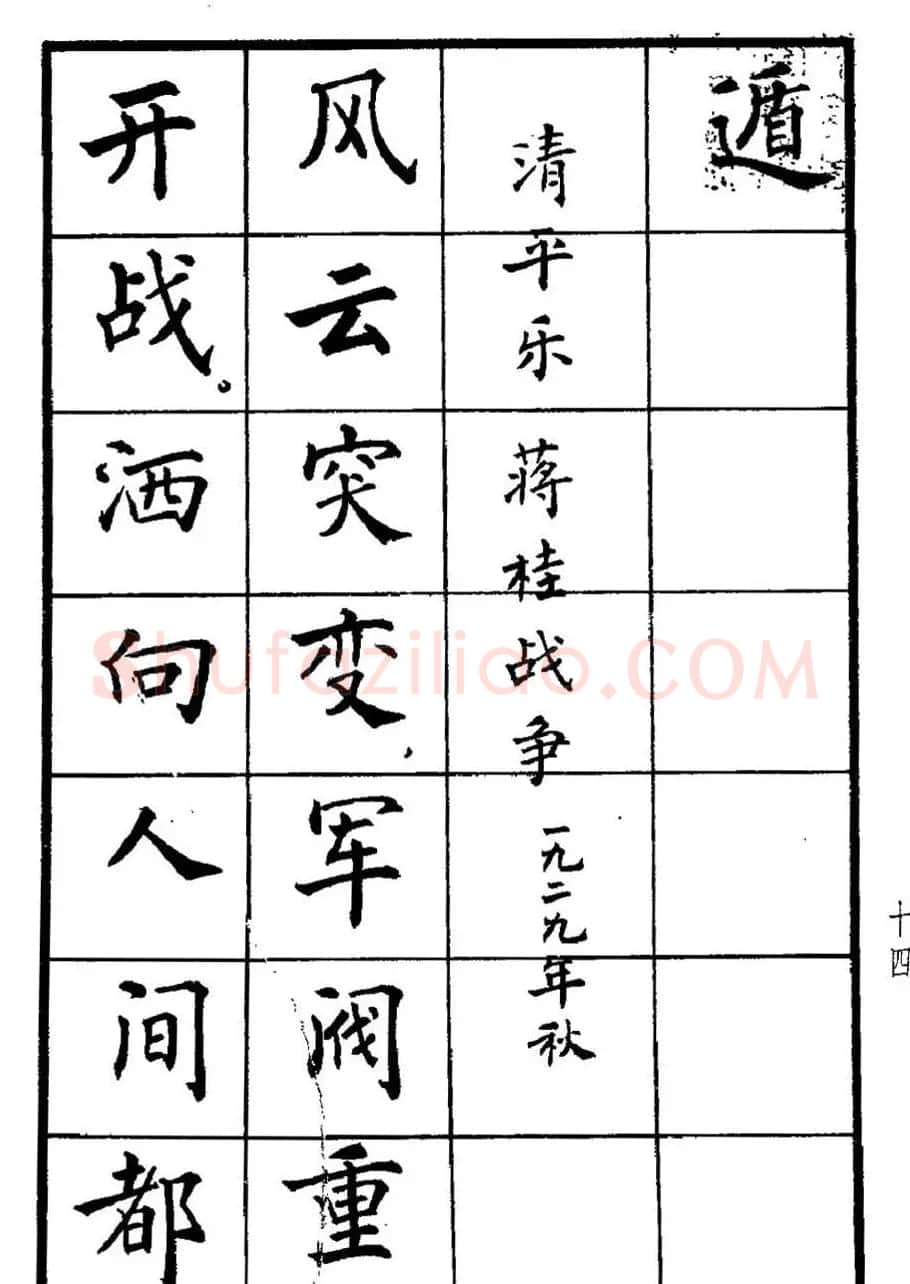 遁
清平乐 蒋桂战争 一九二九年秋
风云突变，军阀重
开战。洒向人间都
十四
Shufaziliao.COM